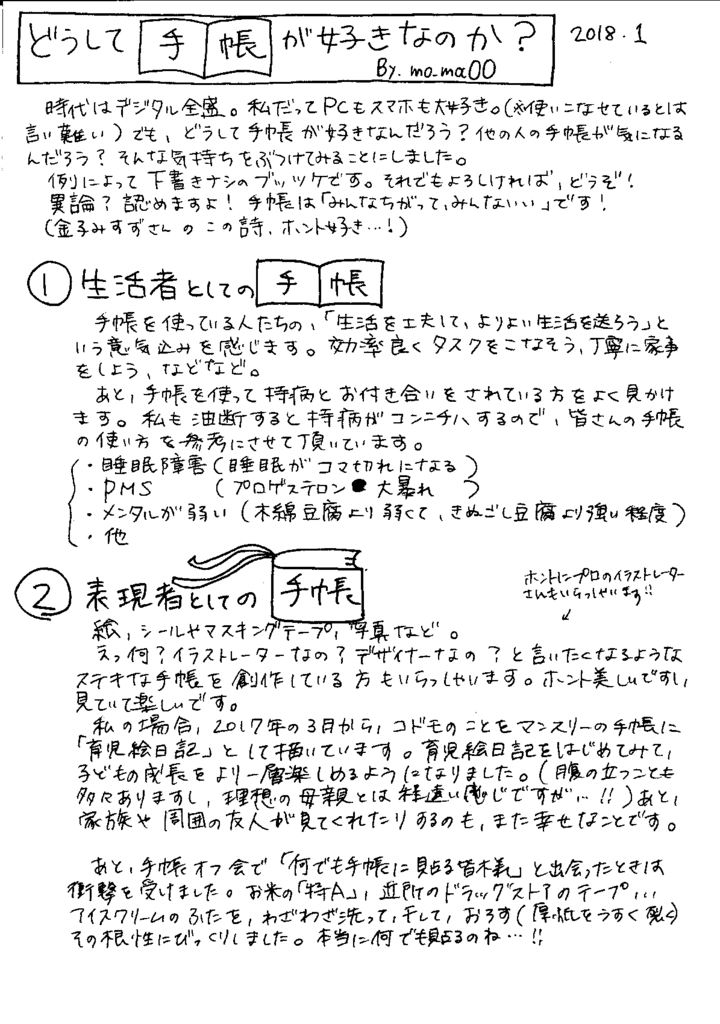 どうして手帳が好きなのか?
2018.1
By. mo_ma00
時代はデジタル全盛。私だってPCもスマホも大好き。(※使いこなせているとは
言い難い)でも、どうして手帳が好きなんだろう?他の人の手帳が気になる
んだろう?そんな気持ちをぶつけてみることにしました。
例によって下書きナシのブッツケです。それでもよろしければ、どうぞ!
異論?認めますよ!手帳は「みんなちがって、みんないい」です!
(金子みすずさんのこの詩、ホント好き…!)
① 生活者としての手帳
手帳を使っている人たちの、「生活を工夫して、よりよい生活を送ろう」と
いう意気込みを感じます。効率良くタスクをこなそう、丁寧に家事
をしよう、などなど。
あと、手帳を使って持病とお付き合いをされている方をよく見かけ
ます。私も油断すると持病がコンニチハするので、皆さんの手帳
の使い方を参考にさせて頂いています。
・睡眠障害(睡眠がコマ切れになる)
・PMS (プロゲステロン大暴れ)
・メンタルが弱い(木綿豆腐より弱くて、きぬごし豆腐より強い程度)
・他
② 表現者としての手帳
ホントにプロのイラストレーター
さんもいらっしゃいます!!
絵、シールやマスキングテープ、写真など。
えっ何?イラストレーターなの?デザイナーなの?と言いたくなるような
ステキな手帳を創作している方もいらっしゃいます。ホント美しいですし、
見ていて楽しいです。
私の場合、2017年の3月から、コドモのことをマンスリーの手帳に
「育児絵日記」として描いています。育児絵日記をはじめてみて、
子どもの成長をより一層楽しめるようになりました。(腹の立つことも
多々ありますし、理想の母親とは程遠い感じですが…!!)あと、
家族や周囲の友人が見てくれたりするのも、また幸せなことです。
あと、手帳オフ会で「何でも手帳に貼る皆様」と出会ったときは
衝撃を受けました。お米の「特A」、近所のドラッグストアのテープ…
アイスクリームのふたを、わざわざ洗って、干して、おろす(厚紙をうすく裂く)
その根性にびっくりしました。本当に何でも貼るのね…!!